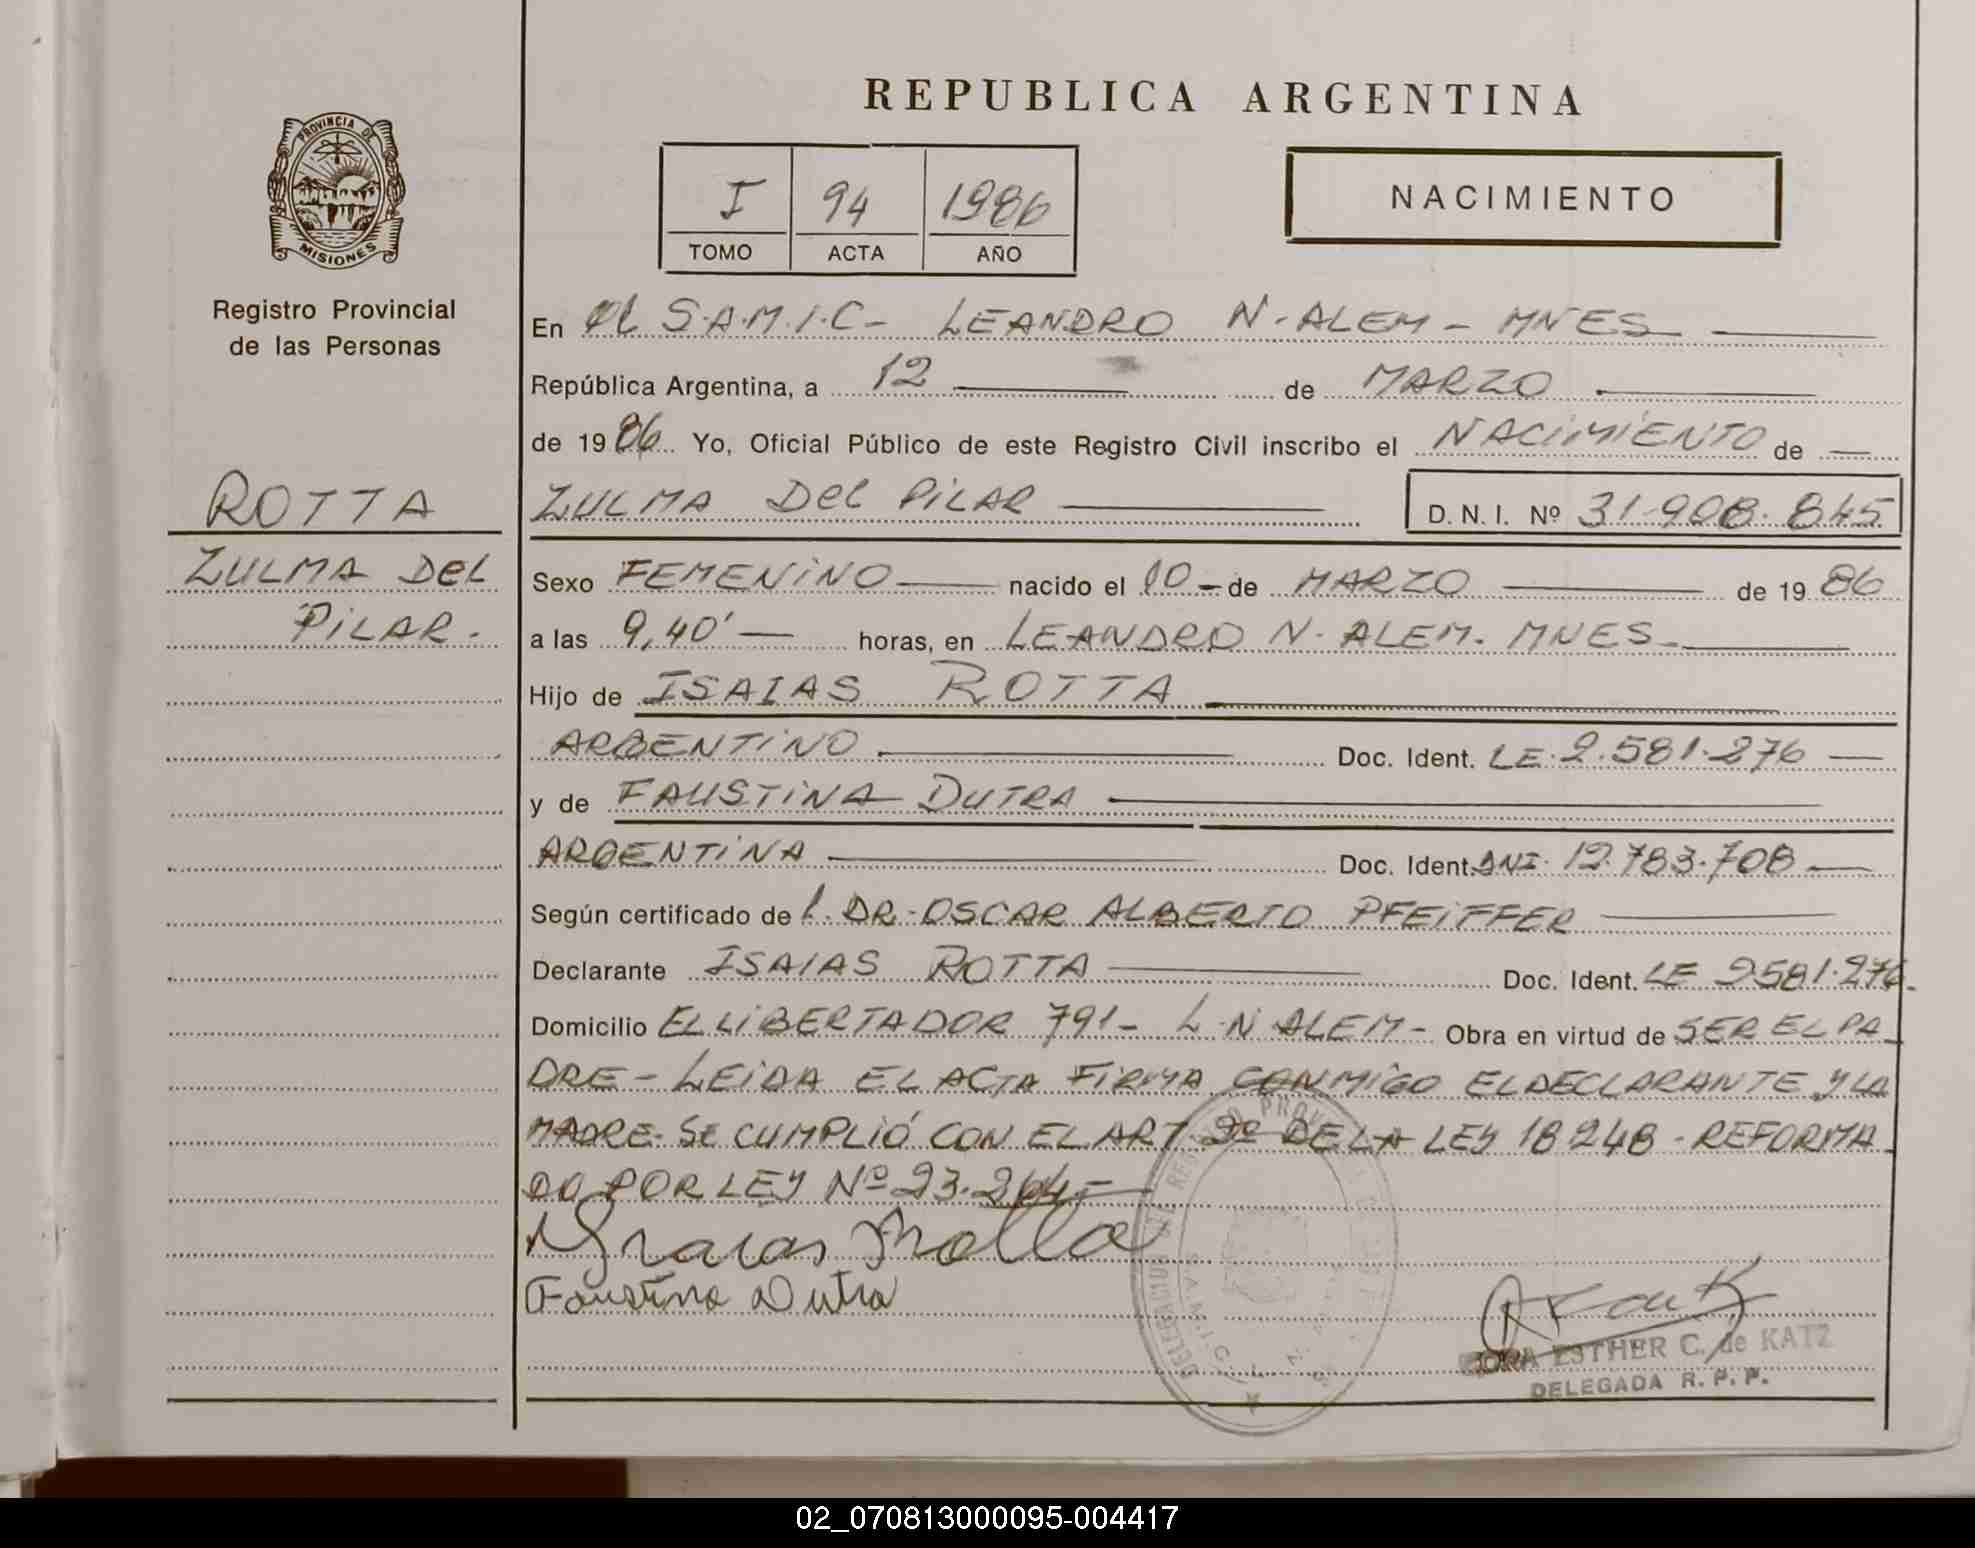 REPUBLICA ARGENTINA
PROVINCIA DE
MISIONES
Registro Provincial
de las Personas
I 94 1986
TOMO ACTA AÑO
NACIMIENTO
En el S.A.M.I.C- LEANDRO N-ALEM- MNES
República Argentina, a 12 de MARZO
de 1986 Yo, Oficial Público de este Registro Civil inscribo el NACIMIENTO de
ROTTA
ZULMA DEL PILAR D.N.I. Nº 31.908.845
ZULMA DEL
PILAR.
Sexo FEMENINO nacido el 10 - de MARZO de 1986
a las 9,40' horas, en LEANDRO N. ALEM. MNES-
Hijo de ISAIAS ROTTA
ARGENTINO Doc. Ident. LE.2.581.276
y de FAUSTINA DUTRA
ARGENTINA Doc. Ident. DNI. 12.783.708
Según certificado del. DR. OSCAR ALBERTO PFEIFFER
Declarante ISAIAS ROTTA Doc. Ident. LE 2581.276.
Domicilio EL LIBERTADOR 791- L.N ALEM- Obra en virtud de SER EL PA
DRE - LEIDA EL ACTA FIRMA CONMIGO EL DECLARANTE Y LA
MADRE. SE CUMPLIÓ CON EL ART. 2º DE LA LEY 18248 - REFORMA
DO POR LEY Nº 23.264.-
Ysaias Rotta
Faustina Dutra
ESTHER C. de KATZ
DELEGADA R. P. P.
02_070813000095-004417